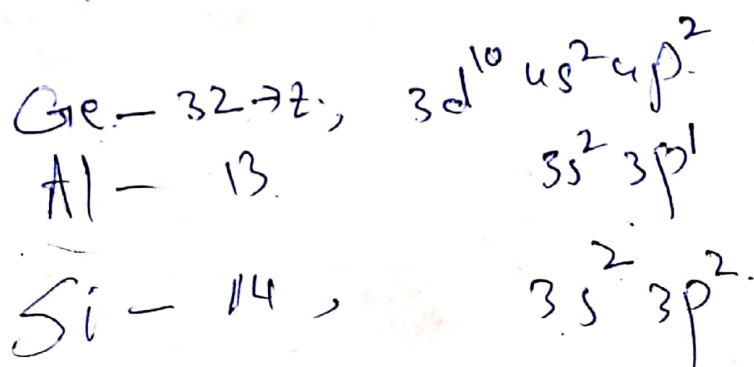 Ge - 32 → z., 3d¹⁰ 4s² 4p².
Al - 13. 3s² 3p¹
Si - 14, 3s² 3p².